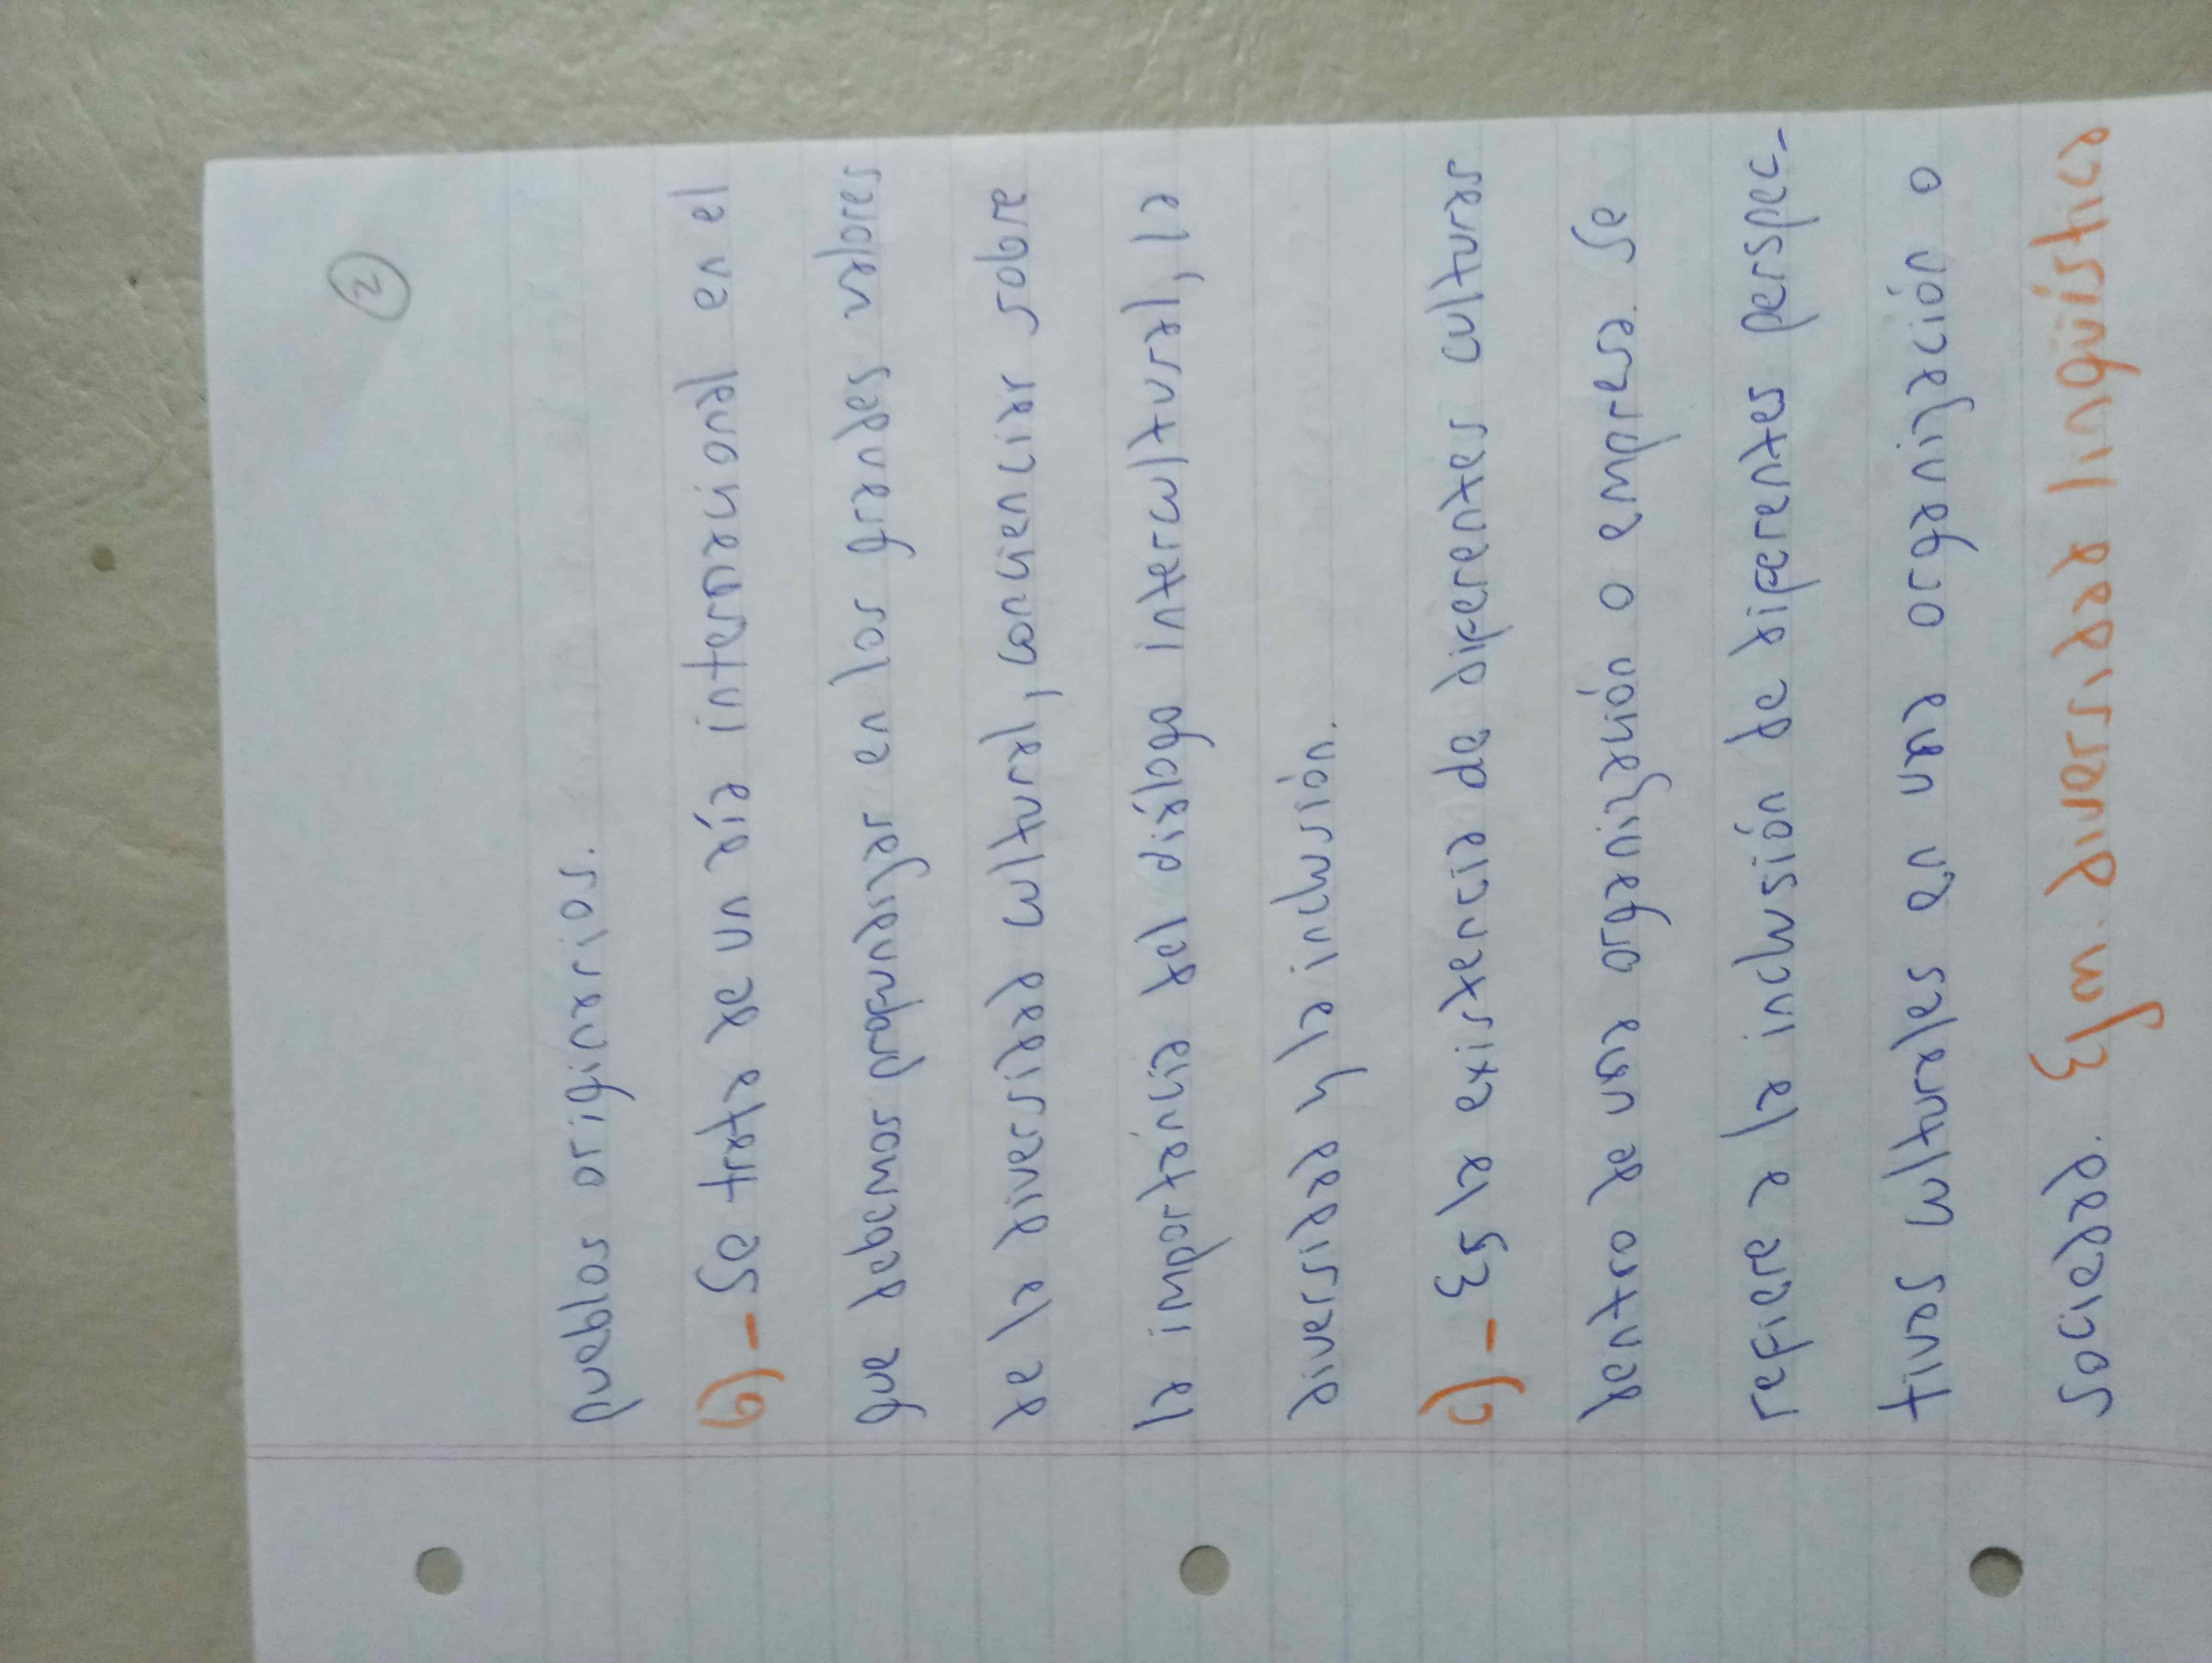 2
pueblos originarios.
b)- Se trata de un día internacional en el
que debemos promulgarles en los grandes valores
de la diversidad cultural, concienciar sobre
la importancia del diálogo intercultural, la
diversidad y la inclusión.
c)- Es la existencia de diferentes culturas
dentro de una organización o empresa. Se
refiere a la inclusión de diferentes perspec-
tivas culturales en una organización o
sociedad. Ej̲m: diversidad lingüística